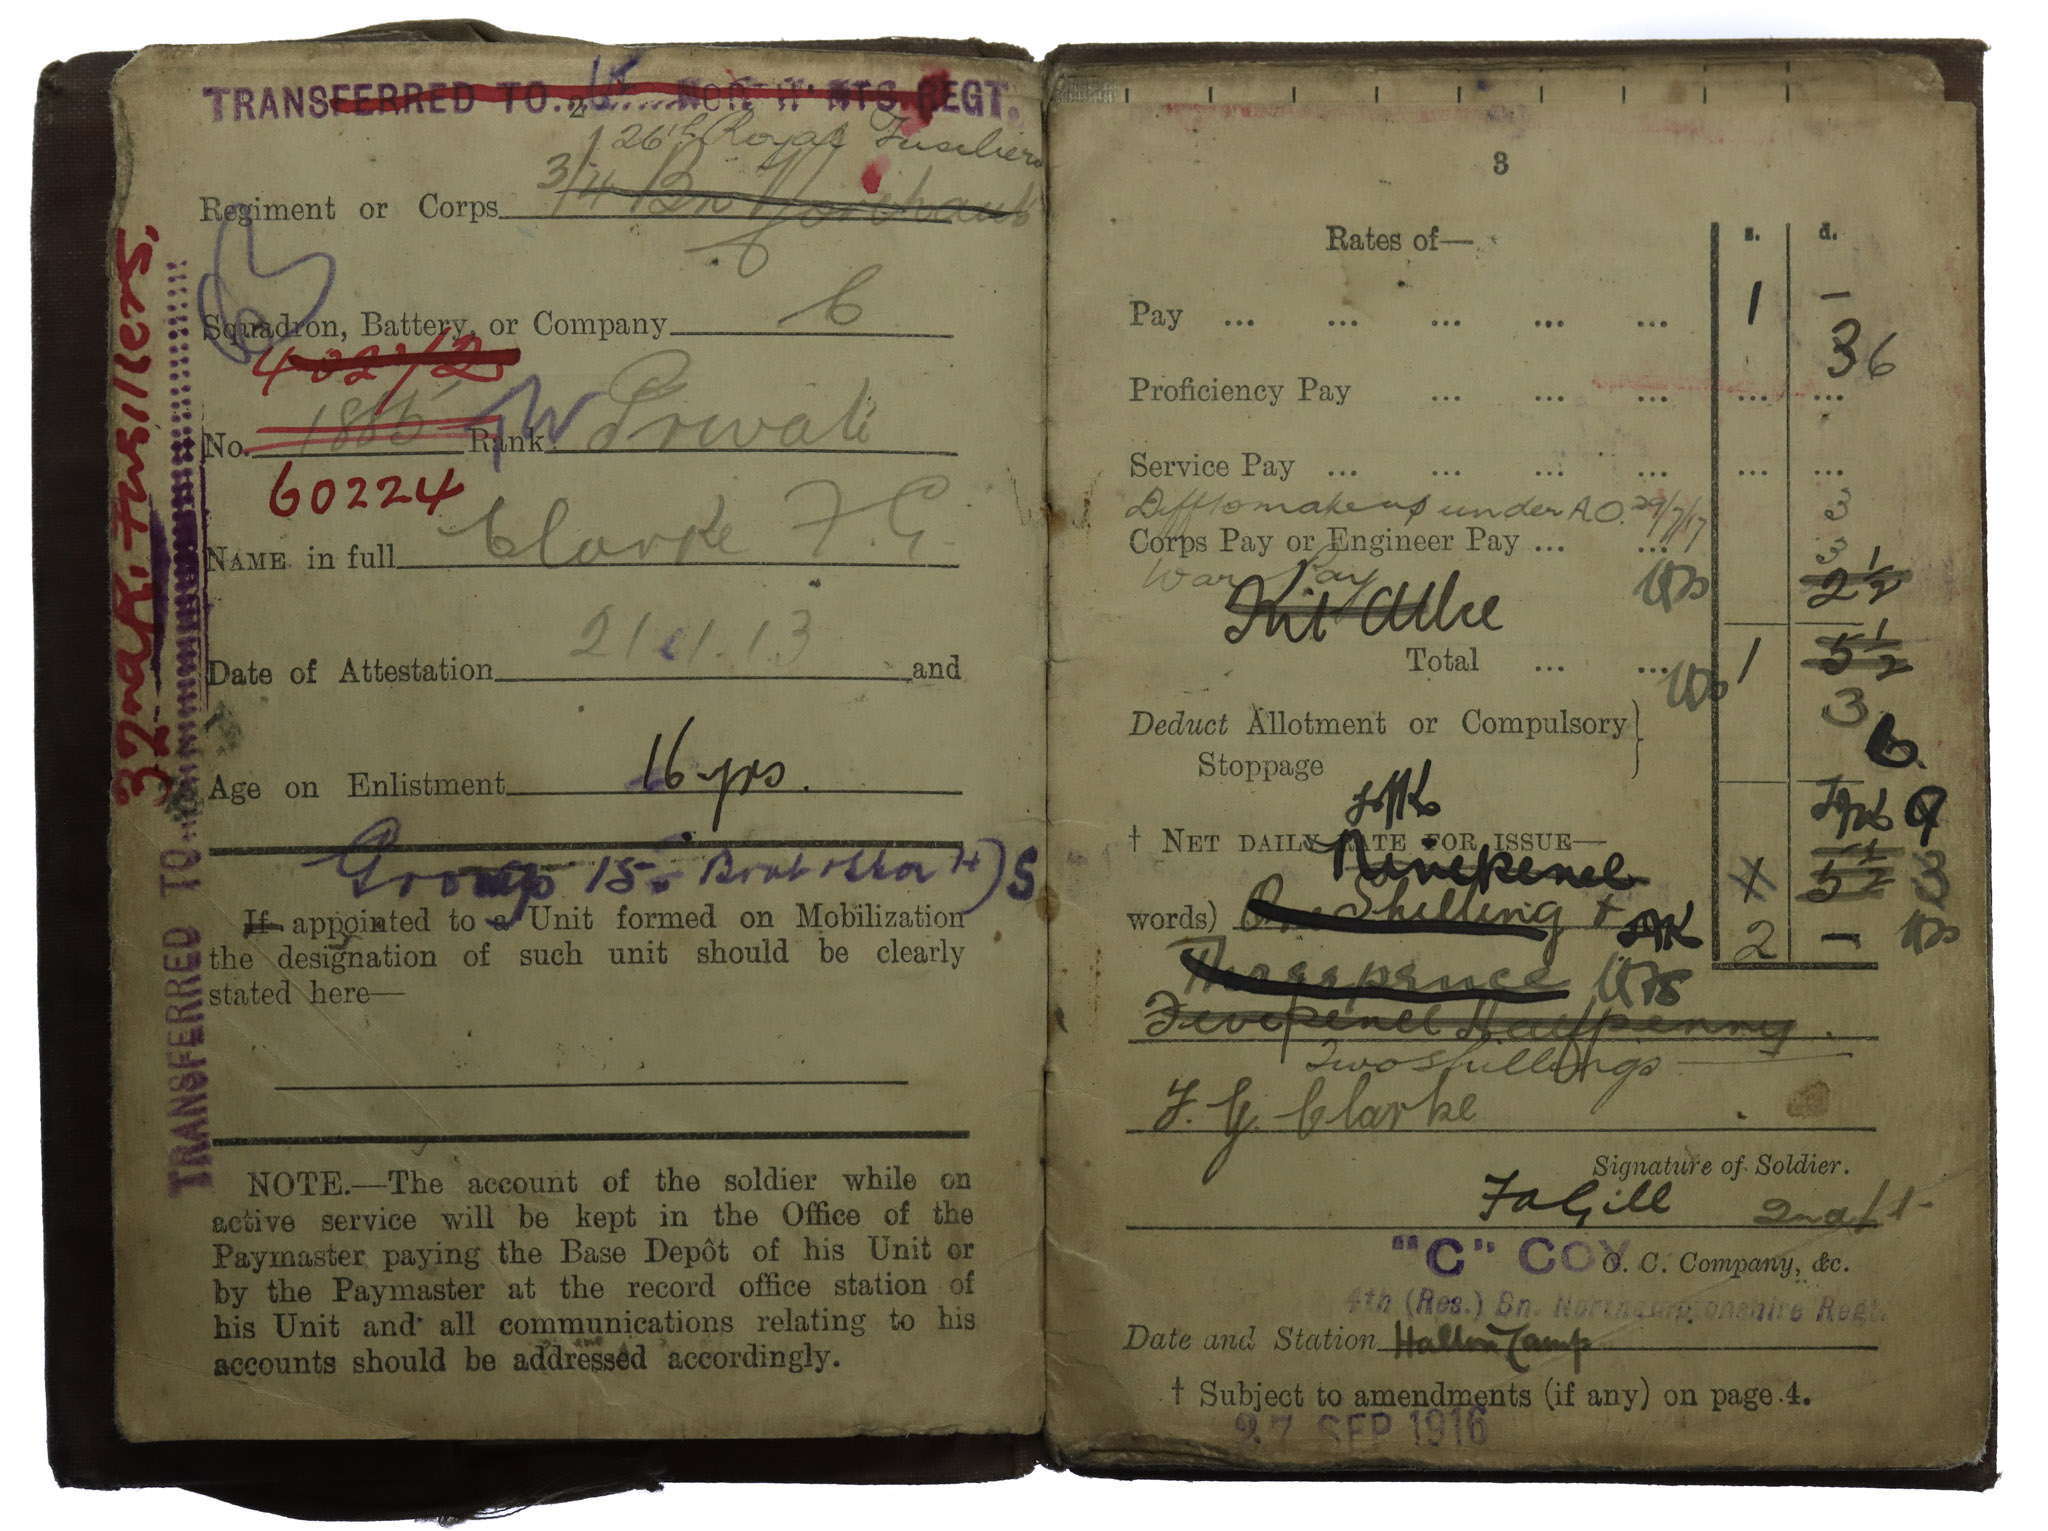 TRANSFERRED TO REGT.
26th Royal Fusiliers
Regiment or Corps 3/4 Bn Northants
Squadron, Battery, or Company C
No. 1865 Rank Private
60224
NAME in full Clarke F. G.
Date of Attestation 21.1.13 and
Age on Enlistment 16 yrs.
Group 15
If appointed to a Unit formed on Mobilization
the designation of such unit should be clearly
stated here—
NOTE.—The account of the soldier while on
active service will be kept in the Office of the
Paymaster paying the Base Depôt of his Unit or
by the Paymaster at the record office station of
his Unit and all communications relating to his
accounts should be addressed accordingly.
32nd R. Fusiliers.
TRANSFERRED TO
3
Rates of— s. d.
Pay ... ... ... ... ... 1 –
3 6
Proficiency Pay ... ... ... ... ...
Service Pay ... ... ... ... ... ...
Diff to make up under A.O. 29/7/17 3
Corps Pay or Engineer Pay ... ... 3
War Pay
Kit Allce 2½
Total ... ... 1 5½
3
Deduct Allotment or Compulsory
Stoppage 6.
† NET DAILY RATE FOR ISSUE—
Ninepence 5½ 3
words) One Shilling + 2 –
Threepence
Fivepence Halfpenny
Two shillings
F. G. Clarke
Signature of Soldier.
F A Gill 2nd Lt
"C" COY O. C. Company, &c.
4th (Res.) Bn. Northamptonshire Regt.
Date and Station Halton Camp
† Subject to amendments (if any) on page 4.
27 SEP 1916